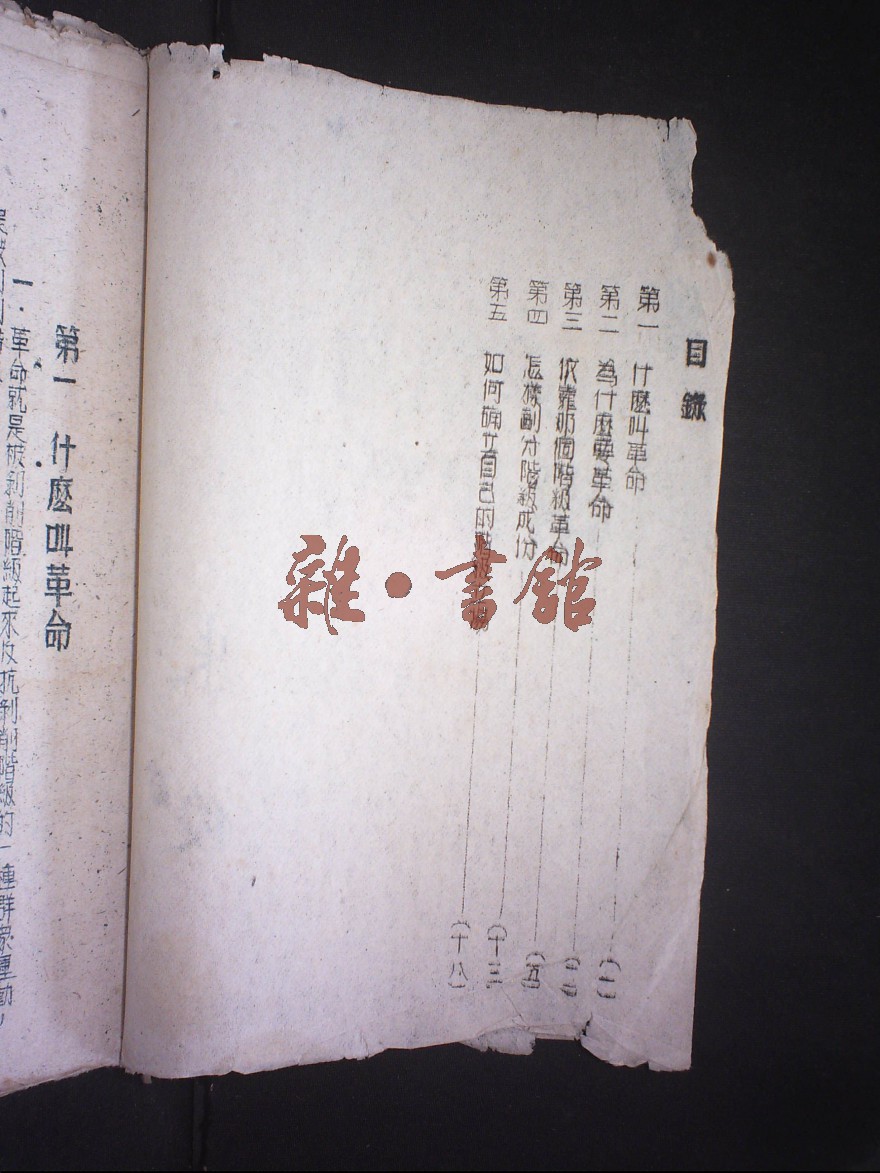 目錄
第一 什麼叫革命 (一)
第二 為什麼要革命 (二)
第三 依靠那個階級革命 (五)
第四 怎樣劃分階級成份 (十三)
第五 如何確立自己的 (十八)
雜·書館
第一 什麼叫革命
一·革命就是被剝削階級起來反抗剝削階級的一種群眾運動，